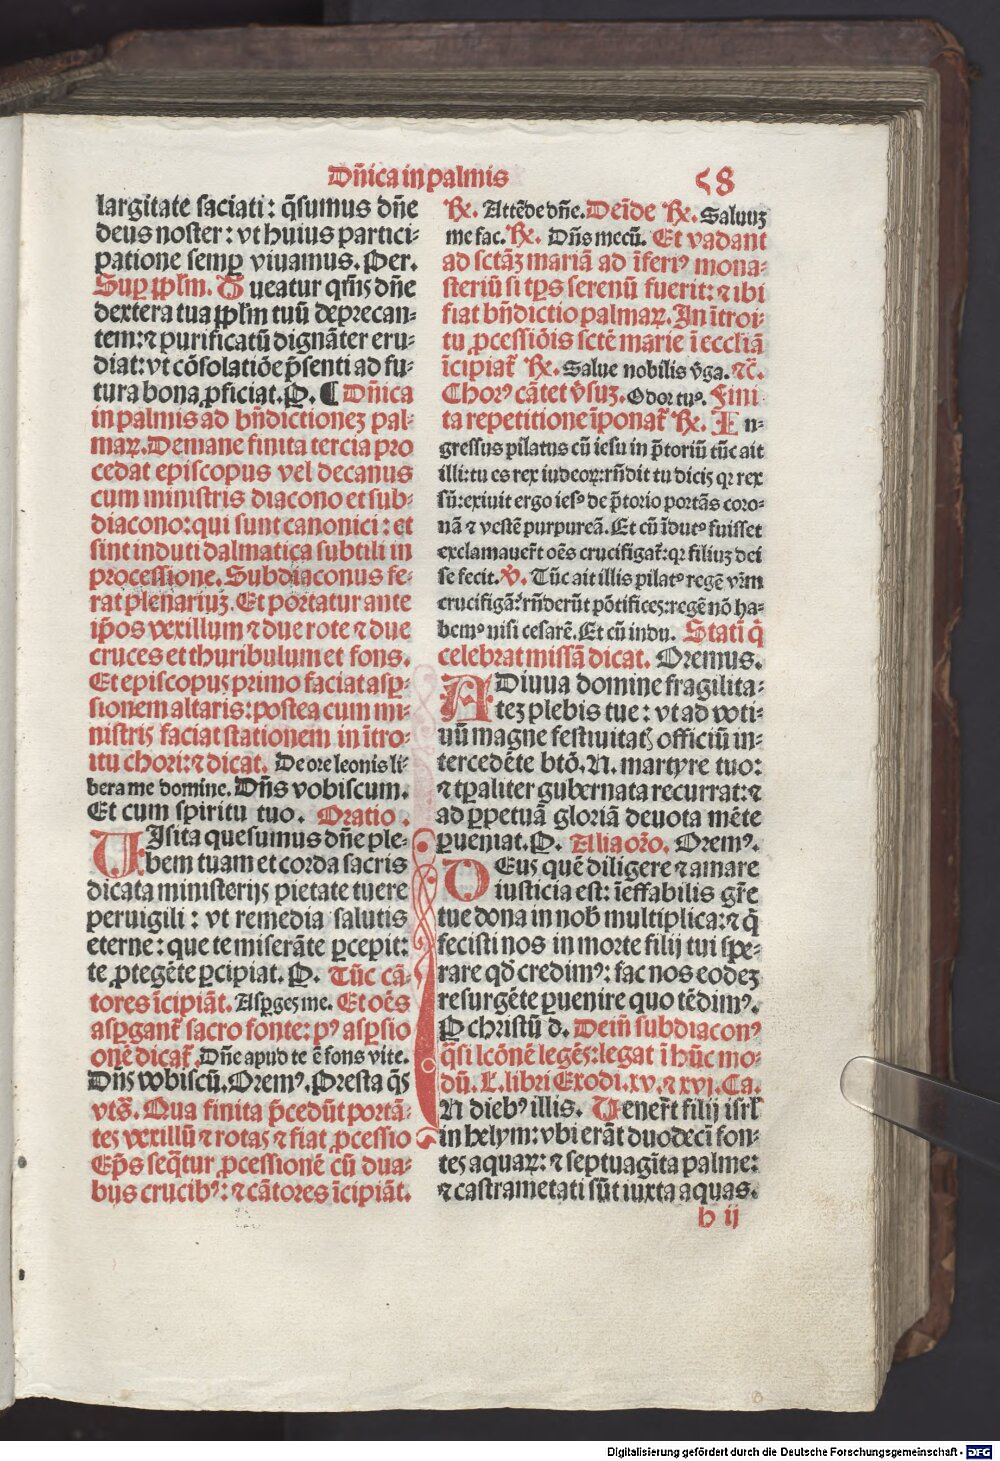 Dn̄ica in palmis
58
largitate saciati: q̄sumus dn̄e
deus noster: vt huius partici-
patione semꝑ viuamus. Per.
Suꝑ ꝑpl̄m. T ueatur qm̄s dn̄e
dextera tua ꝑpl̄m tuū deprecan-
tem: ⁊ purificatū dignāter eru-
diat: vt cōsolatiōe p̄senti ad fu-
tura bona ꝓficiat. P. ¶ Dn̄ica
in palmis ad bn̄dictionez pal-
maꝝ. De mane finita tercia pro
cedat episcopus vel decanus
cum ministris diacono et sub-
diacono: qui sunt canonici: et
sint induti dalmatica subtili in
processione. Subdiaconus fe-
rat plenariuȝ. Et portatur ante
ip̄os vexillum ⁊ due rote ⁊ due
cruces et thuribulum et fons.
Et episcopus primo faciat asꝑ-
sionem altaris: postea cum mi-
nistris faciat stationem in ītro-
itu chori: ⁊ dicat. De ore leonis li-
bera me domine. Dn̄s vobiscum.
Et cum spiritu tuo. Oratio.
UIsita quesumus dn̄e ple-
bem tuam et corda sacris
dicata ministerijs pietate tuere
peruigili: vt remedia salutis
eterne: que te miserāte ꝑcepit:
te ꝓtegēte ꝑcipiat. P. Tūc cā-
tores īcipiāt. Asꝑges me. Et oēs
asꝑgant̄ sacro fonte: pꝰ asꝑsio
onē dicat̄. Dn̄e apud te ē fons vite.
Dn̄s vobiscū. Oremꝰ. Presta q̄s
vts̄. Qua finita p̄cedūt portā-
tes vexillū ⁊ rotas ⁊ fiat ꝓcessio
Ep̄s seq̄tur ꝓcessionē cū dua-
bus crucibꝰ: ⁊ cātores īcipiāt.
℞. Attēde dn̄e. Deīde ℞. Saluuȝ
me fac. ℞. Dn̄s mecū. Et vadant
ad sctāȝ mariā ad īferiꝰ mona-
steriū si tp̄s serenū fuerit: ⁊ ibi
fiat bn̄dictio palmaꝝ. In ītroi-
tu ꝓcessiōis sctē marie ī eccliā
īcipiat̄ ℞. Salue nobilis v̄ga. ⁊c̄.
Chorꝰ cātet v̄suȝ. Odor tuꝰ. Fini
ta repetitione īponat̄ ℞. I n-
gressus pilatus cū iesu in p̄toriū tūc ait
illi: tu es rex iudeoꝝ: rn̄dit tu dicis qꝛ rex
sū: exiuit ergo iesꝰ de p̄torio portās coro-
nā ⁊ vestē purpureā. Et cū īdutꝰ fuisset
exclamauer̄t oēs crucifigat̄: qꝛ filiuȝ dei
se fecit. ℣. Tūc ait illis pilatꝰ regē vr̄m
crucifigā: rn̄derūt pōtifices: regē nō ha-
bemꝰ nisi cesarē. Et cū indu. Statī q̄
celebrat missā dicat. Oremus.
ADiuua domine fragilita-
teȝ plebis tue: vt ad voti-
uū magne festiuitatꝭ officiū in-
tercedēte btō. N. martyre tuo:
⁊ tꝑaliter gubernata recurrat: ⁊
ad ꝑpetuā gloriā deuota mēte
ꝑueniat. P. Alia or̄o. Oremꝰ.
DEus quē diligere ⁊ amare
iusticia est: īeffabilis gr̄e
tue dona in nob̄ multiplica: ⁊ q̄
fecisti nos in morte filij tui spe-
rare qd̄ credimꝰ: fac nos eodeȝ
resurgēte ꝑuenire quo tēdimꝰ.
P christū d. Deīn̄ subdiaconꝰ
q̄si lc̄onē legēs: legat ī hūc mo-
dū. L̄. libri Exodi. xv. ⁊ xvj. Ca.
IN diebꝰ illis. Uener̄t filij isrl̄
in helym: vbi erāt duodecī fon-
tes aquaꝝ: ⁊ septuagīta palme:
⁊ castrametati sūt iuxta aquas.
h ij
Digitalisierung gefördert durch die Deutsche Forschungsgemeinschaft - DFG